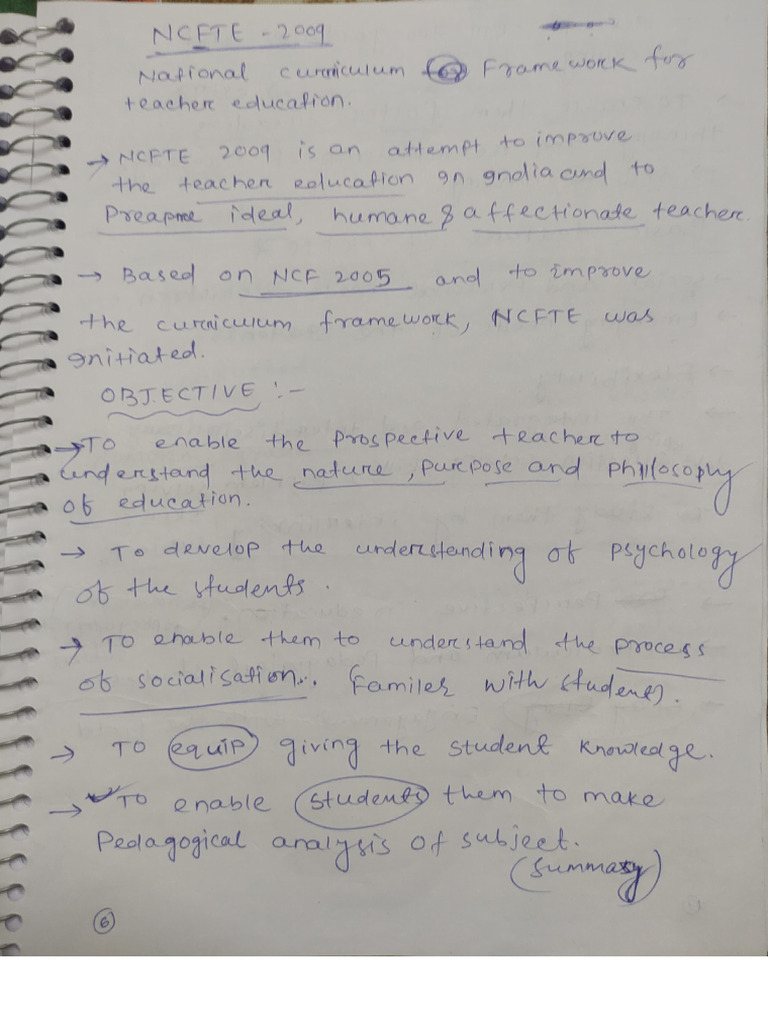 NCFTE - 2009
National curriculum Framework for
teacher education.
→ NCFTE 2009 is an attempt to improve
the teacher education in India and to
Preapme ideal, humane & affectionate teacher.
→ Based on NCF 2005 and to improve
the curriculum framework, NCFTE was
initiated.
OBJECTIVE :-
→ To enable the prospective teacher to
understand the nature, purpose and philosophy
of education.
→ To develop the understanding of psychology
of the students.
→ To enable them to understand the process
of socialisation.. (Familer with students).
→ To equip giving the student knowledge.
→ To enable students them to make
Pedagogical analysis of subject.
(Summary)
6